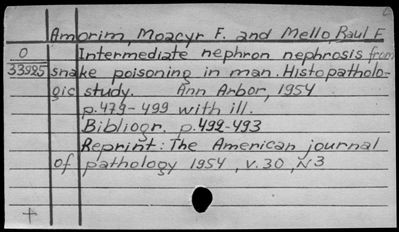 Amorim, Moacyr F. and Mello, Raul F
O Intermediate nephron nephrosis from
33925 snake poisoning in man. Histopatholo-
gic study. Ann Arbor, 1954
p.479-499 with ill.
Bibliogr. p.492-493
Reprint: The American journal
of pathology 1954, v.30, N3